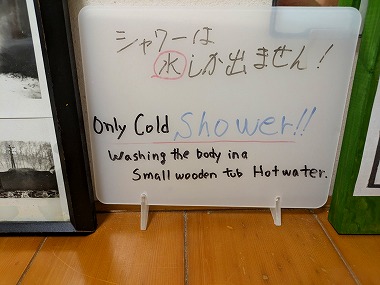 シャワーは
水しか出ません!
Only Cold Shower!!
Washing the body in a
Small wooden tub Hot water.